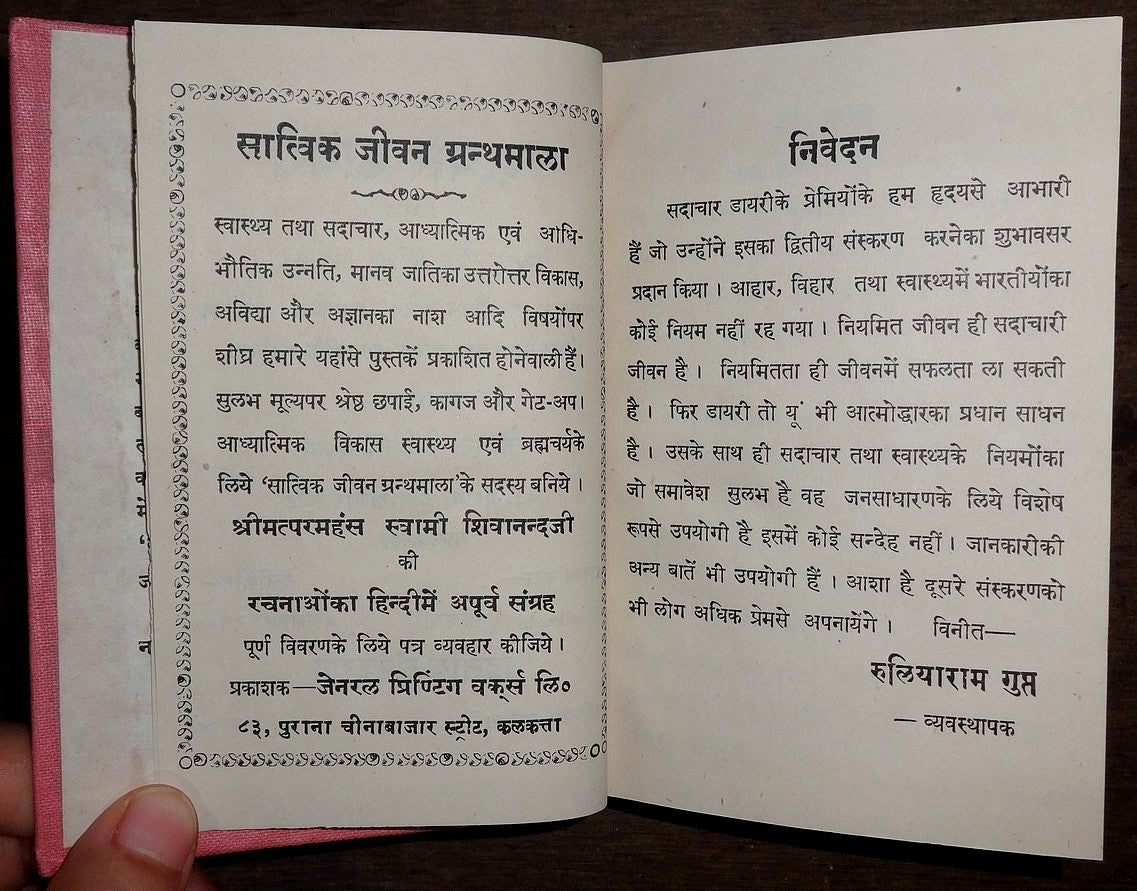 सात्विक जीवन ग्रन्थमाला
स्वास्थ्य तथा सदाचार, आध्यात्मिक एवं आधि-
भौतिक उन्नति, मानव जातिका उत्तरोत्तर विकास,
अविद्या और अज्ञानका नाश आदि विषयोंपर
शीघ्र हमारे यहांसे पुस्तकें प्रकाशित होनेवाली हैं।
सुलभ मूल्यपर श्रेष्ठ छपाई, कागज और गेट-अप।
आध्यात्मिक विकास स्वास्थ्य एवं ब्रह्मचर्यके
लिये ‘सात्विक जीवन ग्रन्थमाला’के सदस्य बनिये।
श्रीमत्परमहंस स्वामी शिवानन्दजी
की
रचनाओंका हिन्दीमें अपूर्व संग्रह
पूर्ण विवरणके लिये पत्र व्यवहार कीजिये।
प्रकाशक—जेनरल प्रिण्टिग वर्क्स लि०
८३, पुराना चीनाबाजार स्ट्रीट, कलकत्ता
निवेदन
सदाचार डायरीके प्रेमियोंके हम हृदयसे आभारी
हैं जो उन्होंने इसका द्वितीय संस्करण करनेका शुभावसर
प्रदान किया। आहार, विहार तथा स्वास्थ्यमें भारतीयोंका
कोई नियम नहीं रह गया। नियमित जीवन ही सदाचारी
जीवन है। नियमितता ही जीवनमें सफलता ला सकती
है। फिर डायरी तो यूं भी आत्मोद्धारका प्रधान साधन
है। उसके साथ ही सदाचार तथा स्वास्थ्यके नियमोंका
जो समावेश सुलभ है वह जनसाधारणके लिये विशेष
रूपसे उपयोगी है इसमें कोई सन्देह नहीं। जानकारीकी
अन्य बातें भी उपयोगी हैं। आशा है दूसरे संस्करणको
भी लोग अधिक प्रेमसे अपनायेंगे। विनीत—
रुलियाराम गुप्त
— व्यवस्थापक